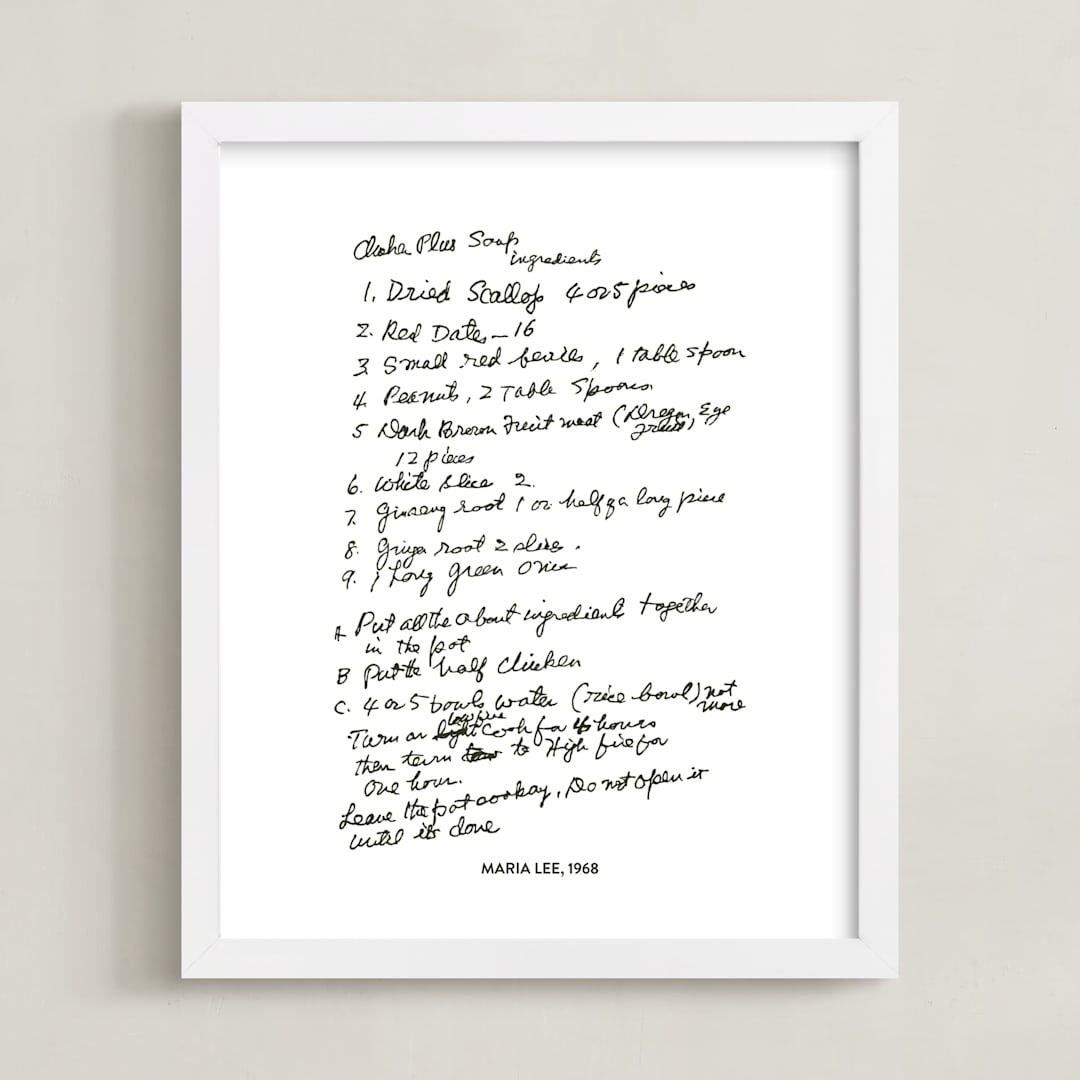 Plus Soup
ingredients
1. Dried Scallop 4 or 5 pieces
2. Red Dates – 16
3 Small red berries, 1 table spoon
4. Peanuts, 2 Table Spoons.
5 Dark Brown Fruit meat (Dragon Eye
Fruit)
12 pieces
6. White slice 2.
7. Ginseng root 1 or half of a long piece
8. Ginger root 2 slices.
9. 1 Long green onion
A Put all the about ingredients together
in the pot
B Put the half chicken
C. 4 or 5 bowls water (rice bowl) not
more
low fire
Turn on cook for hours
then turn to High fire for
One hour.
Leave the pot cooking, Do not open it
until it's done
MARIA LEE, 1968